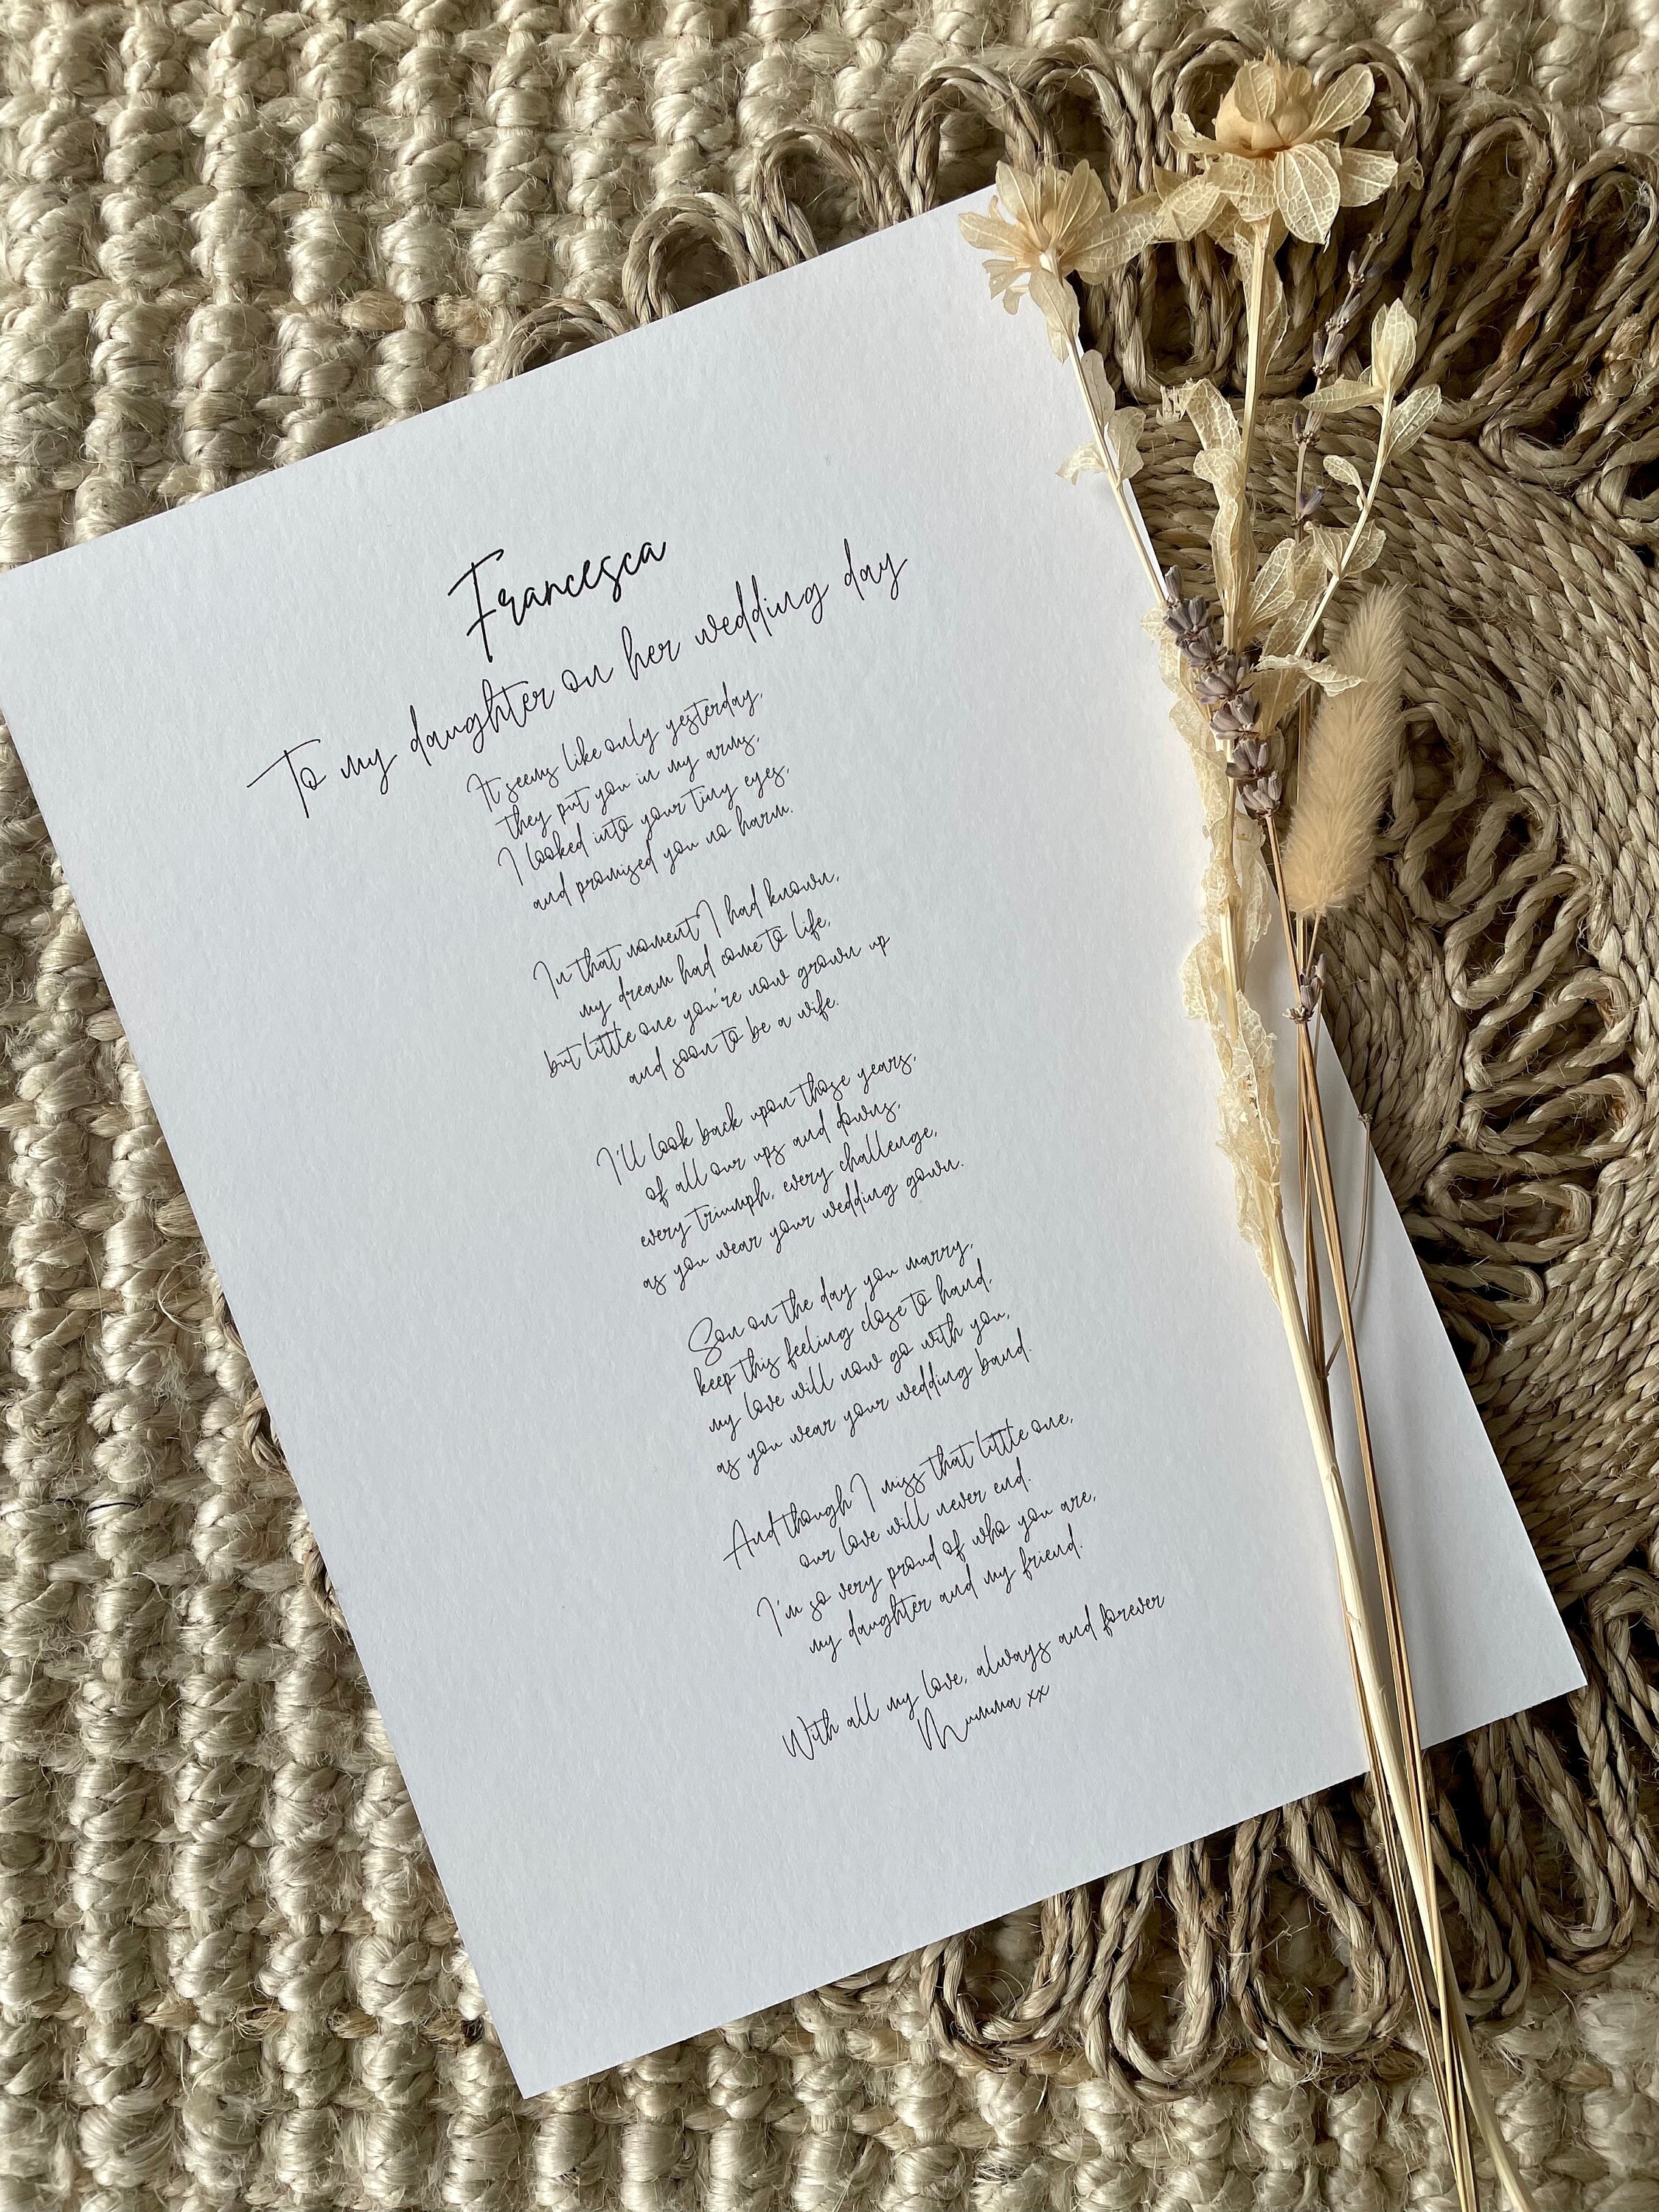 Francesca
To my daughter on her wedding day
It seems like only yesterday,
they put you in my arms,
I looked into your tiny eyes,
and promised you no harm.
In that moment I had known,
my dream had come to life,
but little one you're now grown up
and soon to be a wife.
I'll look back upon those years,
of all our ups and downs,
every triumph, every challenge,
as you wear your wedding gown.
Son on the day you marry,
keep this feeling close to hand.
my love will now go with you,
as you wear your wedding band.
And though I miss that little one,
our love will never end.
I'm so very proud of who you are,
my daughter and my friend.
With all my love, always and forever
Mumma xx